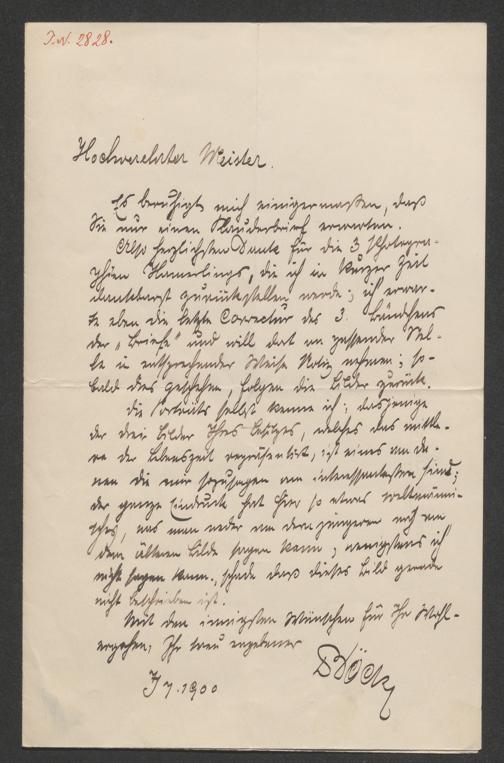 I.N. 2828.
Hochverehrter Meister.
Es beruhigt mich einigermaßen, daß
Sie nur einen Plauderbrief erwarten.
Also herzlichsten Dank für die 3 Photogra-
phien Hamerlings, die ich in kurzer Zeit
dankbarst zurückstellen werde; ich erwar-
te eben die letzte Correctur des 3. Bändchens
der „Briefe" und will dort an passender Stel-
le in entsprechender Weise Notiz nehmen; so-
bald dies geschehen, folgen die Bilder zurück.
Die Porträts selbst kenne ich; dasjenige
der drei Bilder Ihres Besitzes, welches das mittle-
re der Lebenszeit repräsentirt, ist eines von de-
nen die mir sozusagen am interessantesten sind;
der ganze Eindruck hat hier so etwas weltmänni-
sches, was man weder von dem jüngeren noch von
dem älteren Bilde sagen kann; wenigstens ich
nicht sagen kann. Schade daß dieses Bild gerade
nicht beschrieben ist.
Mit den innigsten Wünschen für Ihr Wohl-
ergehen, Ihr treu ergebener
Böck
7. 1900